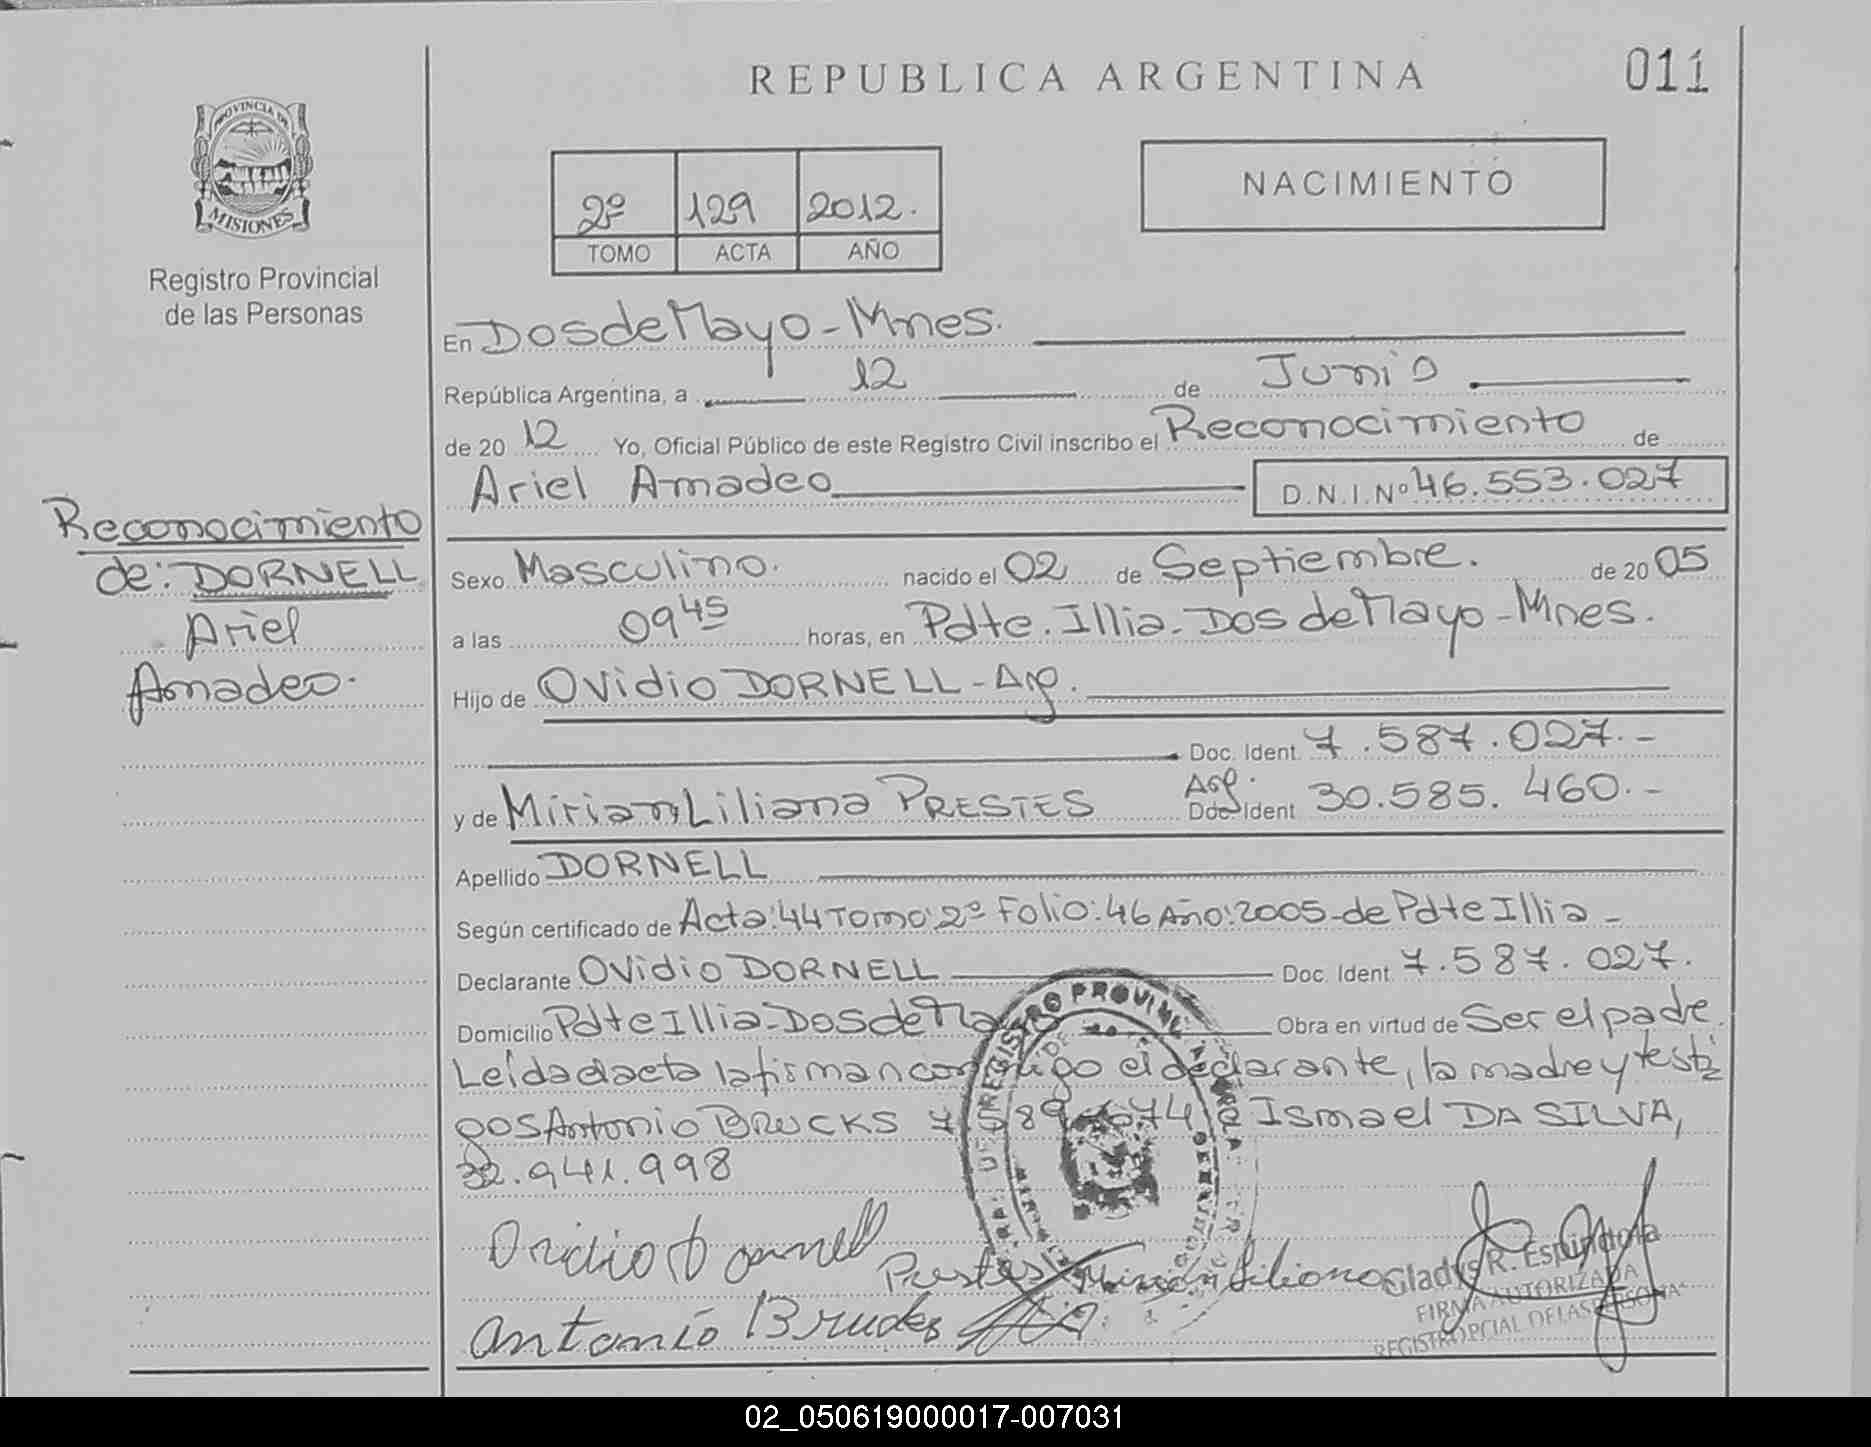 REPUBLICA ARGENTINA
011
PROVINCIA DE
MISIONES
Registro Provincial
de las Personas
2º 129 2012.
TOMO ACTA AÑO
NACIMIENTO
En Dos de Mayo - Mnes.
República Argentina, a 12 de Junio
de 20 12 Yo, Oficial Público de este Registro Civil inscribo el Reconocimiento de
Ariel Amadeo D.N.I.Nº 46.553.027
Reconocimiento
de: DORNELL
Ariel
Amadeo.
Sexo Masculino. nacido el 02 de Septiembre. de 20 05
a las 09 45 horas, en Pdte. Illia - Dos de Mayo - Mnes.
Hijo de Ovidio DORNELL - Arg.
Doc. Ident. 7.587.027.-
y de Mirian Liliana PRESTES Arg. Doc. Ident 30.585.460.-
Apellido DORNELL
Según certificado de Acta: 44 Tomo: 2º Folio: 46 Año: 2005 - de Pdte Illia -
Declarante Ovidio DORNELL Doc. Ident. 7.587.027.
Domicilio Pdte Illia - Dos de Mayo Obra en virtud de Ser el padre.
Leída el acta la firman conmigo el declarante, la madre y testi
gos Antonio BRUCKS e Ismael DA SILVA,
32.941.998
Ovidio Dornell
Prestes Mirian Liliana
Antonio Brucks
Gladys R. Espindola
FIRMA AUTORIZADA
REGISTRO PCIAL DE LAS PERSONAS
02_050619000017-007031